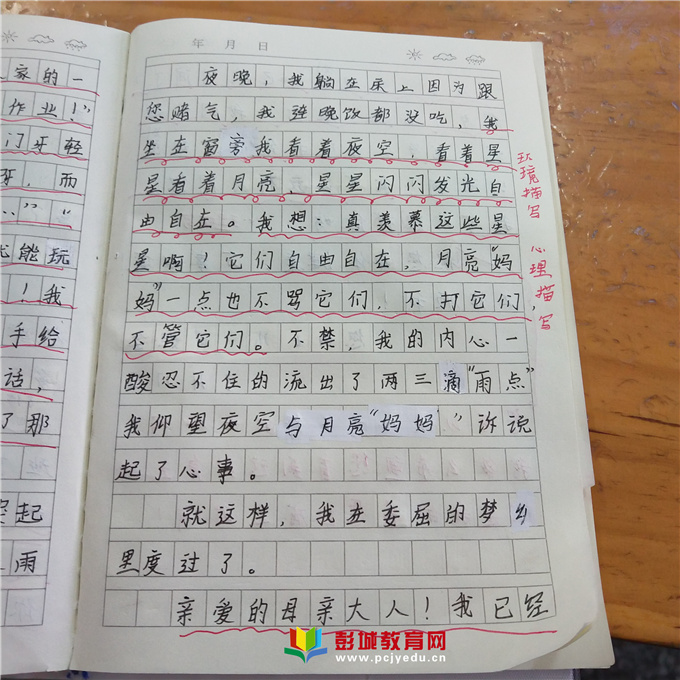 年 月 日
家的一
作业！”
门牙轻
牙，而
…”“
能玩
！我
手给
话，
了那
起
雨
夜晚，我躺在床上因为跟
您赌气，我连晚饭都没吃，我
坐在窗旁我看着夜空，看着星
星看着月亮，星星闪闪发光自
由自在。我想：真羡慕这些星
星啊！它们自由自在，月亮“妈
妈”一点也不骂它们，不打它们，
不管它们。不禁，我的内心一
酸忍不住的流出了两三滴“雨点”
我仰望夜空与月亮“妈妈”诉说
起了心事。
就这样，我在委屈的梦乡
里度过了。
亲爱的母亲大人！我已经
环境描写
心理描写
彭城教育网
www.pcjyedu.cn